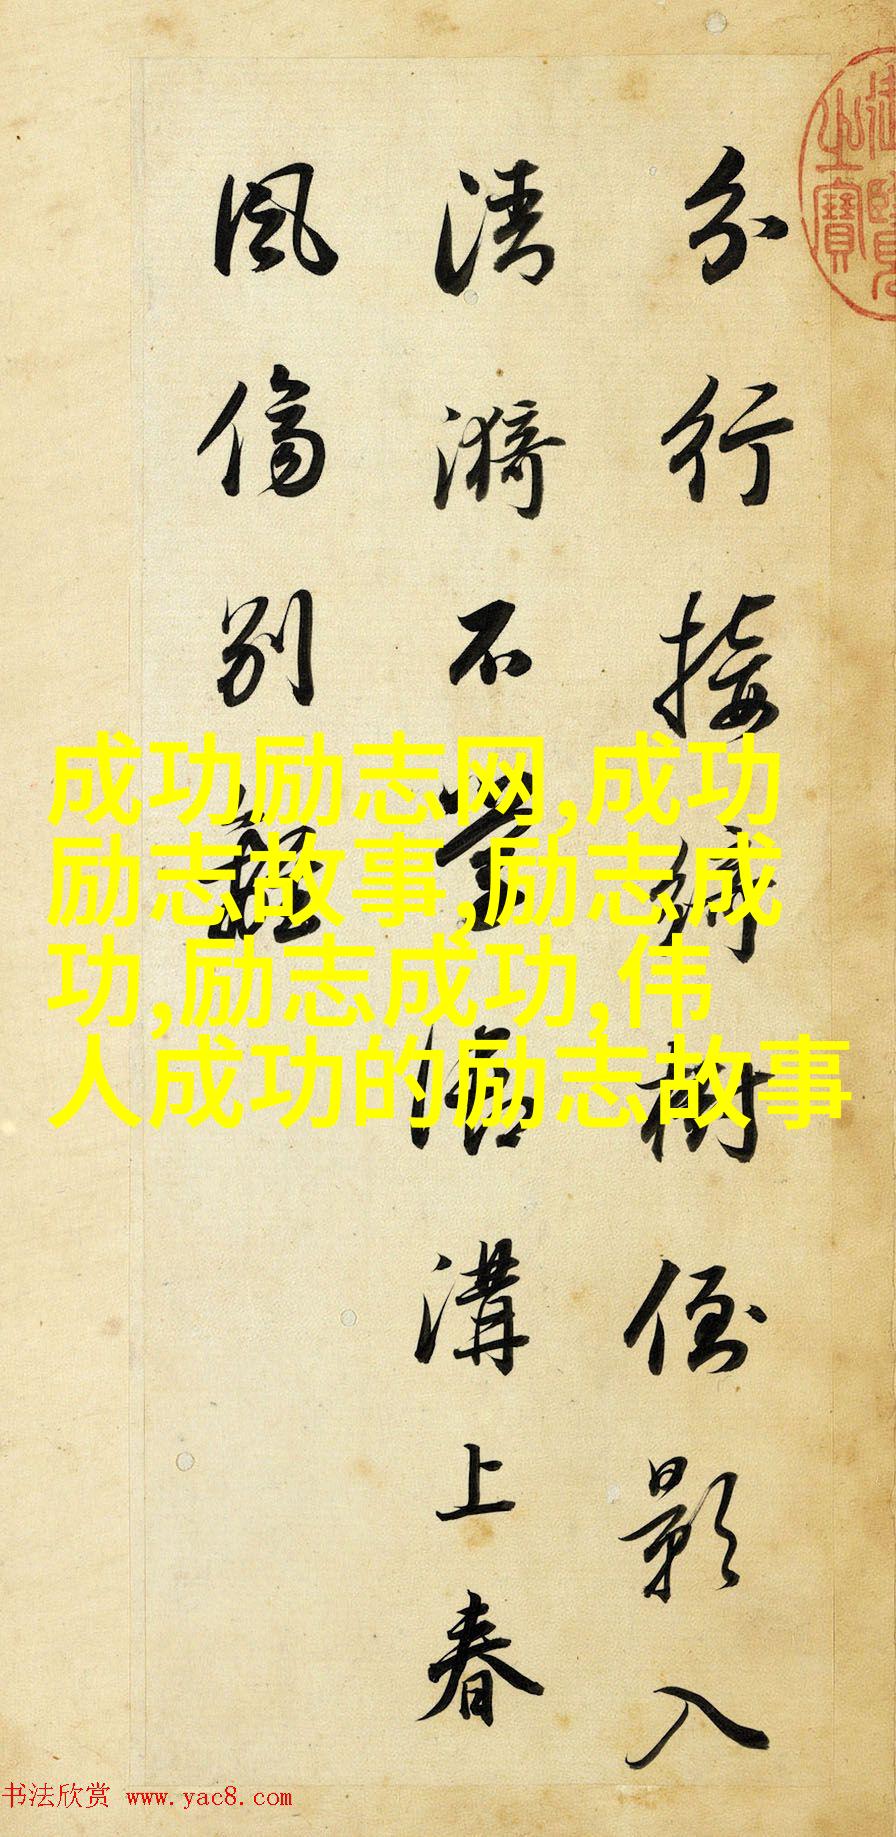 分行接綺樹倒影入
清漪不學御溝上春
風傷別離
成功励志网,成功
励志故事,励志成
功,励志成功,伟
人成功的励志故事
书法欣赏 www.yac8.com